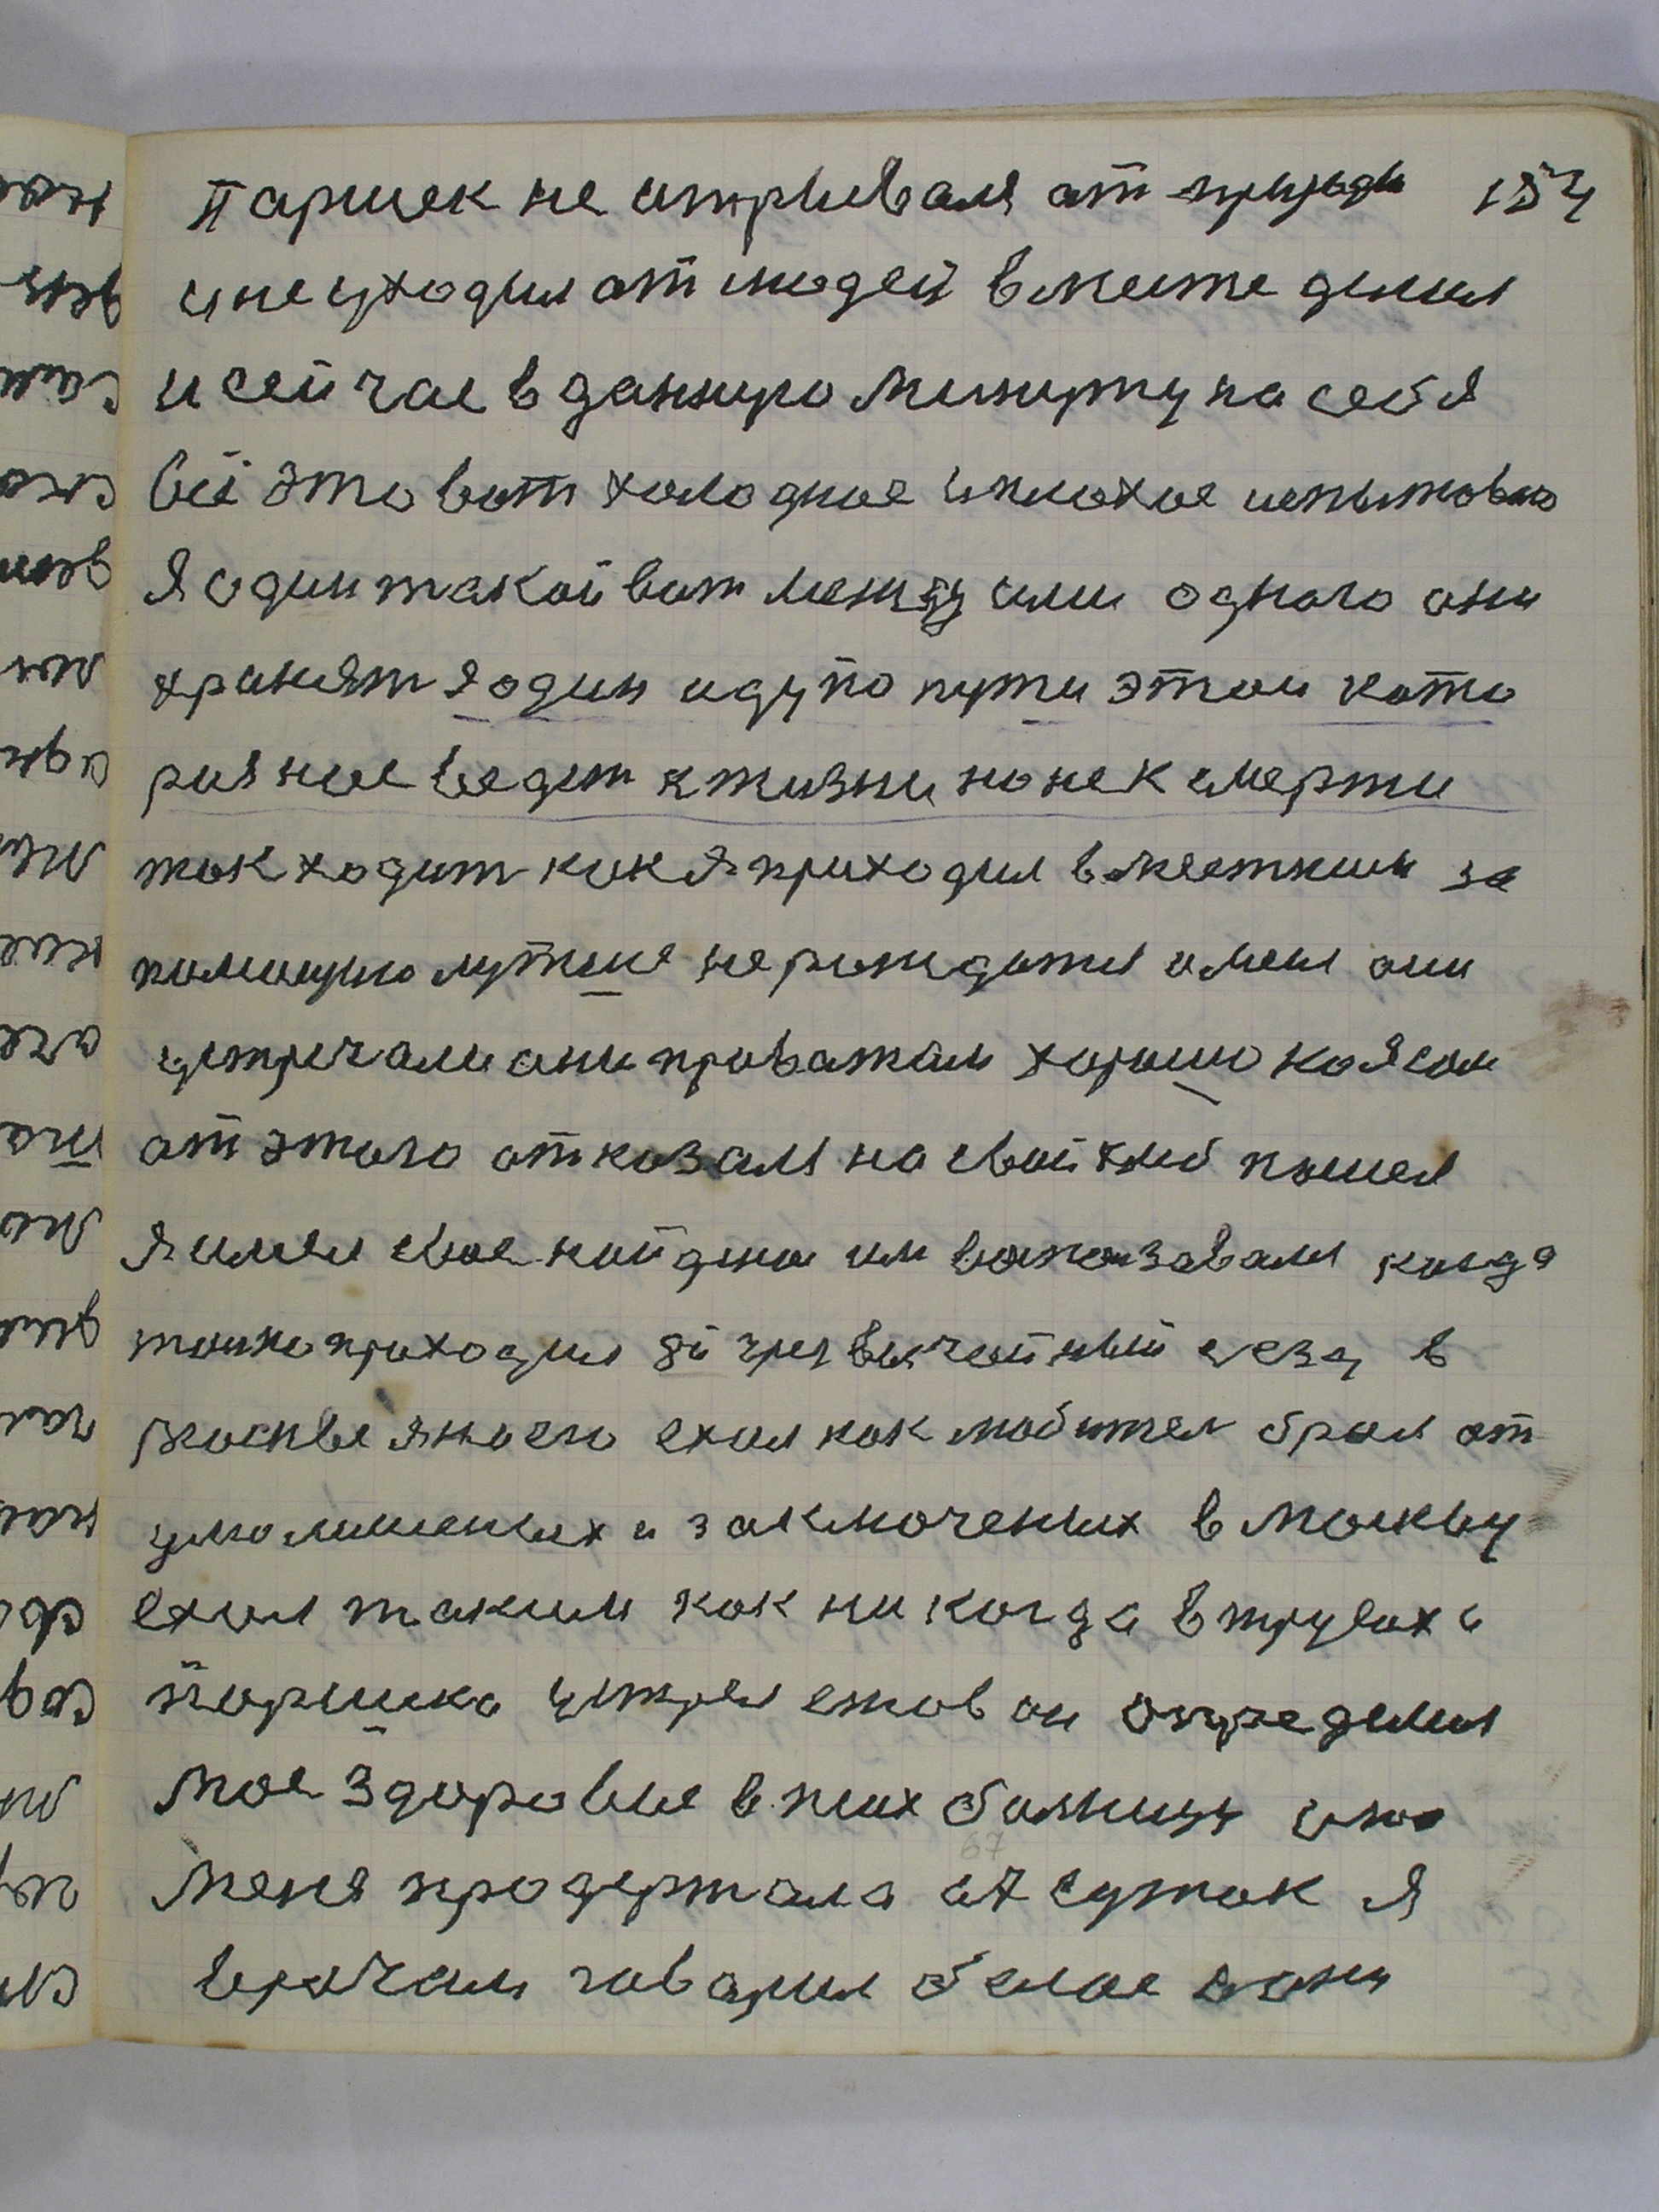 Паршек не атрывался от природы 154
и не уходил от людей вместе делил
и сейчас в данную минуту на себя
всё это вот холодное и плохое испытоваю
Я один такой вот между ими одного они
хранят я один иду по пути этом кото
ведет к жизни но не к смерти
так ходит как я приходил в местным за
помощую лутше не рождатся имел они
устречали они праважали хорошо но я сам
от этого отказался на свой хлеб пошел
Я имел свое найдено им ползавался когда
толко приходил 8й чрезвычайный сезд в
Москве я на его ехал как любител брал от
умолишеных и заключеных в Москву
ехал таким как никогда в трусах а
Паршека устрел он определил
Мое здоровие в них болницу
Меня продержала 67 суток я
врачам гаварил белое они